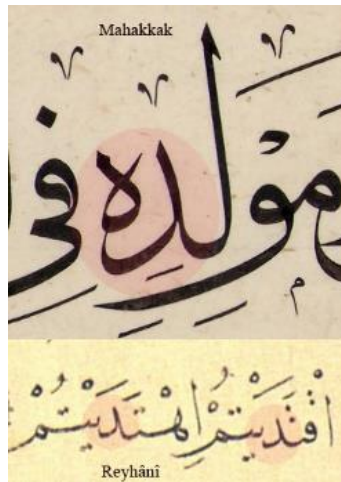 Mahakkak
مَوْلِدِهِ فِي
اقْتَدَيْتُمْ اِهْتَدَيْتُمْ
Reyhânî